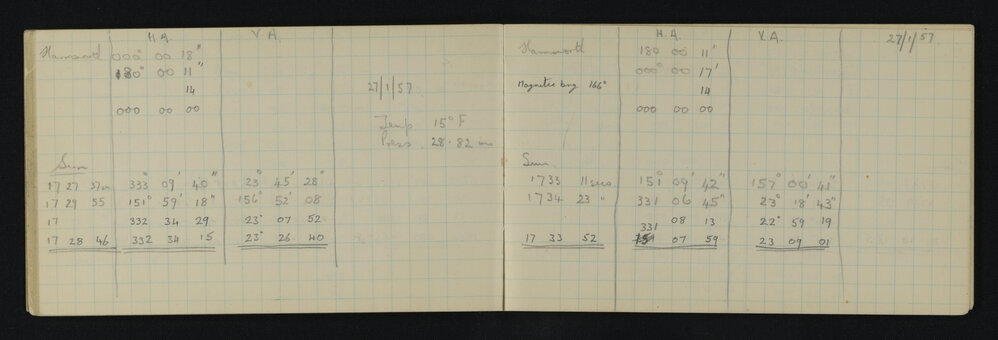 H.A. V.A.
000° 00 18"
180° 00 11"
14
27/1/57
000 00 00
Temp 15° F
Press. 28.82 ins
Sun
17 27 37 333° 09' 40" 23° 45' 28"
17 29 55 151° 59' 18" 156° 52' 08
17 332 34 29 23° 07 52
17 28 46 332 34 15 23° 26 40
H.A. V.A. 27/1/57
180 00 11'
Magnetic brg 166° 000° 00 17'
14
000 00 00
Sun
1733 11 secs 151° 09' 42" 157° 00' 41"
1734 23 " 331 06 45" 23° 18' 43"
331 08 13 22° 59 19
17 33 52 07 59 23 09 01